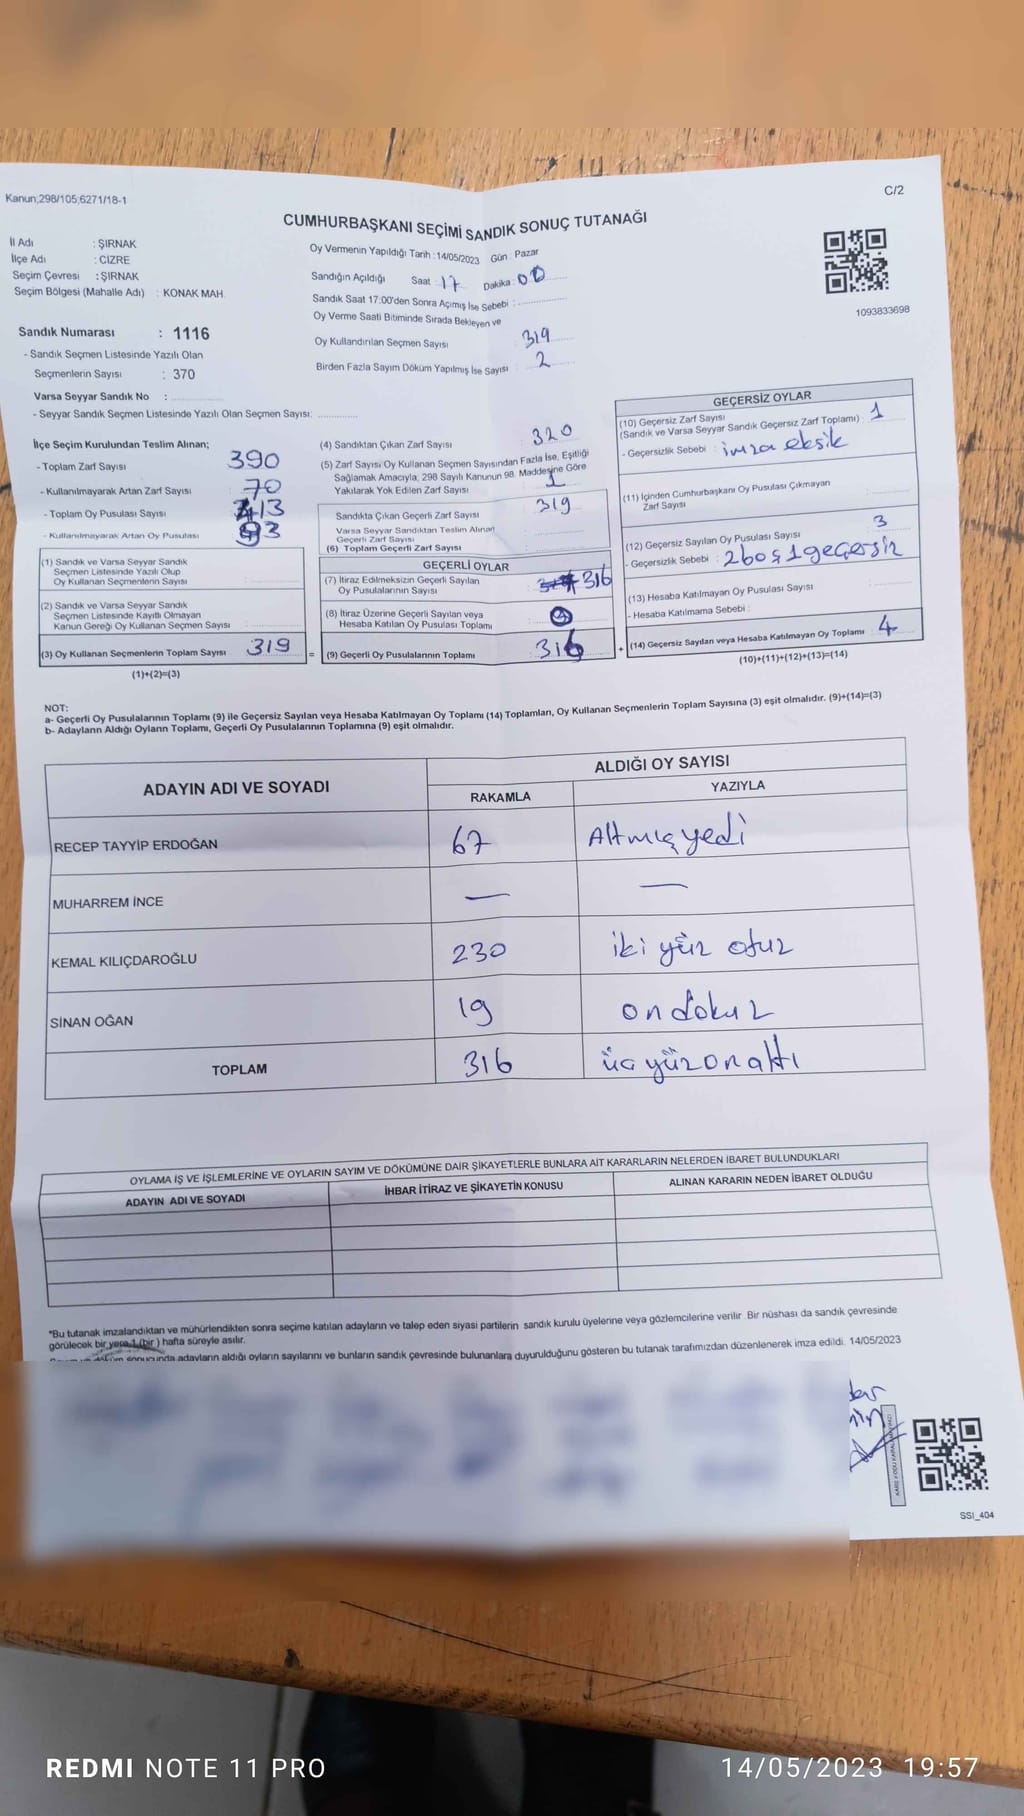 Kanun;298/105;6271/18-1
C/2
CUMHURBAŞKANI SEÇİMİ SANDIK SONUÇ TUTANAĞI
İl Adı : ŞIRNAK
İlçe Adı : CİZRE
Seçim Çevresi : ŞIRNAK
Seçim Bölgesi (Mahalle Adı) : KONAK MAH.
Sandık Numarası : 1116
- Sandık Seçmen Listesinde Yazılı Olan
Seçmenlerin Sayısı : 370
Varsa Seyyar Sandık No :
- Seyyar Sandık Seçmen Listesinde Yazılı Olan Seçmen Sayısı:
Oy Vermenin Yapıldığı Tarih : 14/05/2023 Gün : Pazar
Sandığın Açıldığı Saat : 17 Dakika : 00
Sandık Saat 17:00'den Sonra Açımış İse Sebebi :
Oy Verme Saati Bitiminde Sırada Bekleyen ve
Oy Kullandırılan Seçmen Sayısı 319
Birden Fazla Sayım Döküm Yapılmış İse Sayısı : 2
1093833698
İlçe Seçim Kurulundan Teslim Alınan;
- Toplam Zarf Sayısı 390
- Kullanılmayarak Artan Zarf Sayısı 70
- Toplam Oy Pusulası Sayısı 413
- Kullanılmayarak Artan Oy Pusulası 93
(1) Sandık ve Varsa Seyyar Sandık
Seçmen Listesinde Yazılı Olup
Oy Kullanan Seçmenlerin Sayısı
(2) Sandık ve Varsa Seyyar Sandık
Seçmen Listesinde Kayıtlı Olmayan
Kanun Gereği Oy Kullanan Seçmen Sayısı
(3) Oy Kullanan Seçmenlerin Toplam Sayısı 319 =
(1)+(2)=(3)
(4) Sandıktan Çıkan Zarf Sayısı 320
(5) Zarf Sayısı Oy Kullanan Seçmen Sayısından Fazla İse, Eşitliği
Sağlamak Amacıyla, 298 Sayılı Kanunun 98. Maddesine Göre
Yakılarak Yok Edilen Zarf Sayısı 1
Sandıkta Çıkan Geçerli Zarf Sayısı 319
Varsa Seyyar Sandıktan Teslim Alınan
Geçerli Zarf Sayısı
(6) Toplam Geçerli Zarf Sayısı
GEÇERLİ OYLAR
(7) İtiraz Edilmeksizin Geçerli Sayılan
Oy Pusulalarının Sayısı 316
(8) İtiraz Üzerine Geçerli Sayılan veya
Hesaba Katılan Oy Pusulası Toplamı
(9) Geçerli Oy Pusulalarının Toplamı 316 +
GEÇERSİZ OYLAR
(10) Geçersiz Zarf Sayısı
(Sandık ve Varsa Seyyar Sandık Geçersiz Zarf Toplamı) : 1
- Geçersizlik Sebebi : imza eksik
(11) İçinden Cumhurbaşkanı Oy Pusulası Çıkmayan
Zarf Sayısı
(12) Geçersiz Sayılan Oy Pusulası Sayısı 3
- Geçersizlik Sebebi : 2 boş 1 geçersiz
(13) Hesaba Katılmayan Oy Pusulası Sayısı
- Hesaba Katılmama Sebebi :
(14) Geçersiz Sayılan veya Hesaba Katılmayan Oy Toplamı 4
(10)+(11)+(12)+(13)=(14)
NOT:
a- Geçerli Oy Pusulalarının Toplamı (9) ile Geçersiz Sayılan veya Hesaba Katılmayan Oy Toplamı (14) Toplamları, Oy Kullanan Seçmenlerin Toplam Sayısına (3) eşit olmalıdır. (9)+(14)=(3)
b- Adayların Aldığı Oyların Toplamı, Geçerli Oy Pusulalarının Toplamına (9) eşit olmalıdır.
ADAYIN ADI VE SOYADI
ALDIĞI OY SAYISI
RAKAMLA YAZIYLA
RECEP TAYYİP ERDOĞAN 67 Altmış yedi
MUHARREM İNCE — —
KEMAL KILIÇDAROĞLU 230 iki yüz otuz
SİNAN OĞAN 19 on dokuz
TOPLAM 316 üç yüz on altı
OYLAMA İŞ VE İŞLEMLERİNE VE OYLARIN SAYIM VE DÖKÜMÜNE DAİR ŞİKAYETLERLE BUNLARA AİT KARARLARIN NELERDEN İBARET BULUNDUKLARI
ADAYIN ADI VE SOYADI İHBAR İTİRAZ VE ŞİKAYETİN KONUSU ALINAN KARARIN NEDEN İBARET OLDUĞU
*Bu tutanak imzalandıktan ve mühürlendikten sonra seçime katılan adayların ve talep eden siyasi partilerin sandık kurulu üyelerine veya gözlemcilerine verilir. Bir nüshası da sandık çevresinde
görülecek bir yere 1 (bir) hafta süreyle asılır.
sonucunda adayların aldığı oyların sayılarını ve bunların sandık çevresinde bulunanlara duyurulduğunu gösteren bu tutanak tarafımızdan düzenlenerek imza edildi. 14/05/2023
SSI_404
REDMI NOTE 11 PRO
14/05/2023 19:57